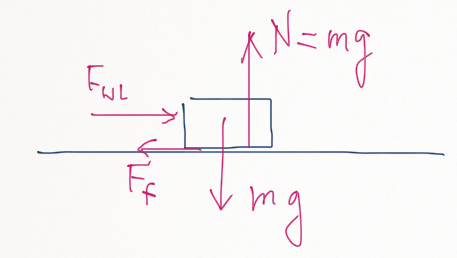 N=mg
F_WL
F_f
mg